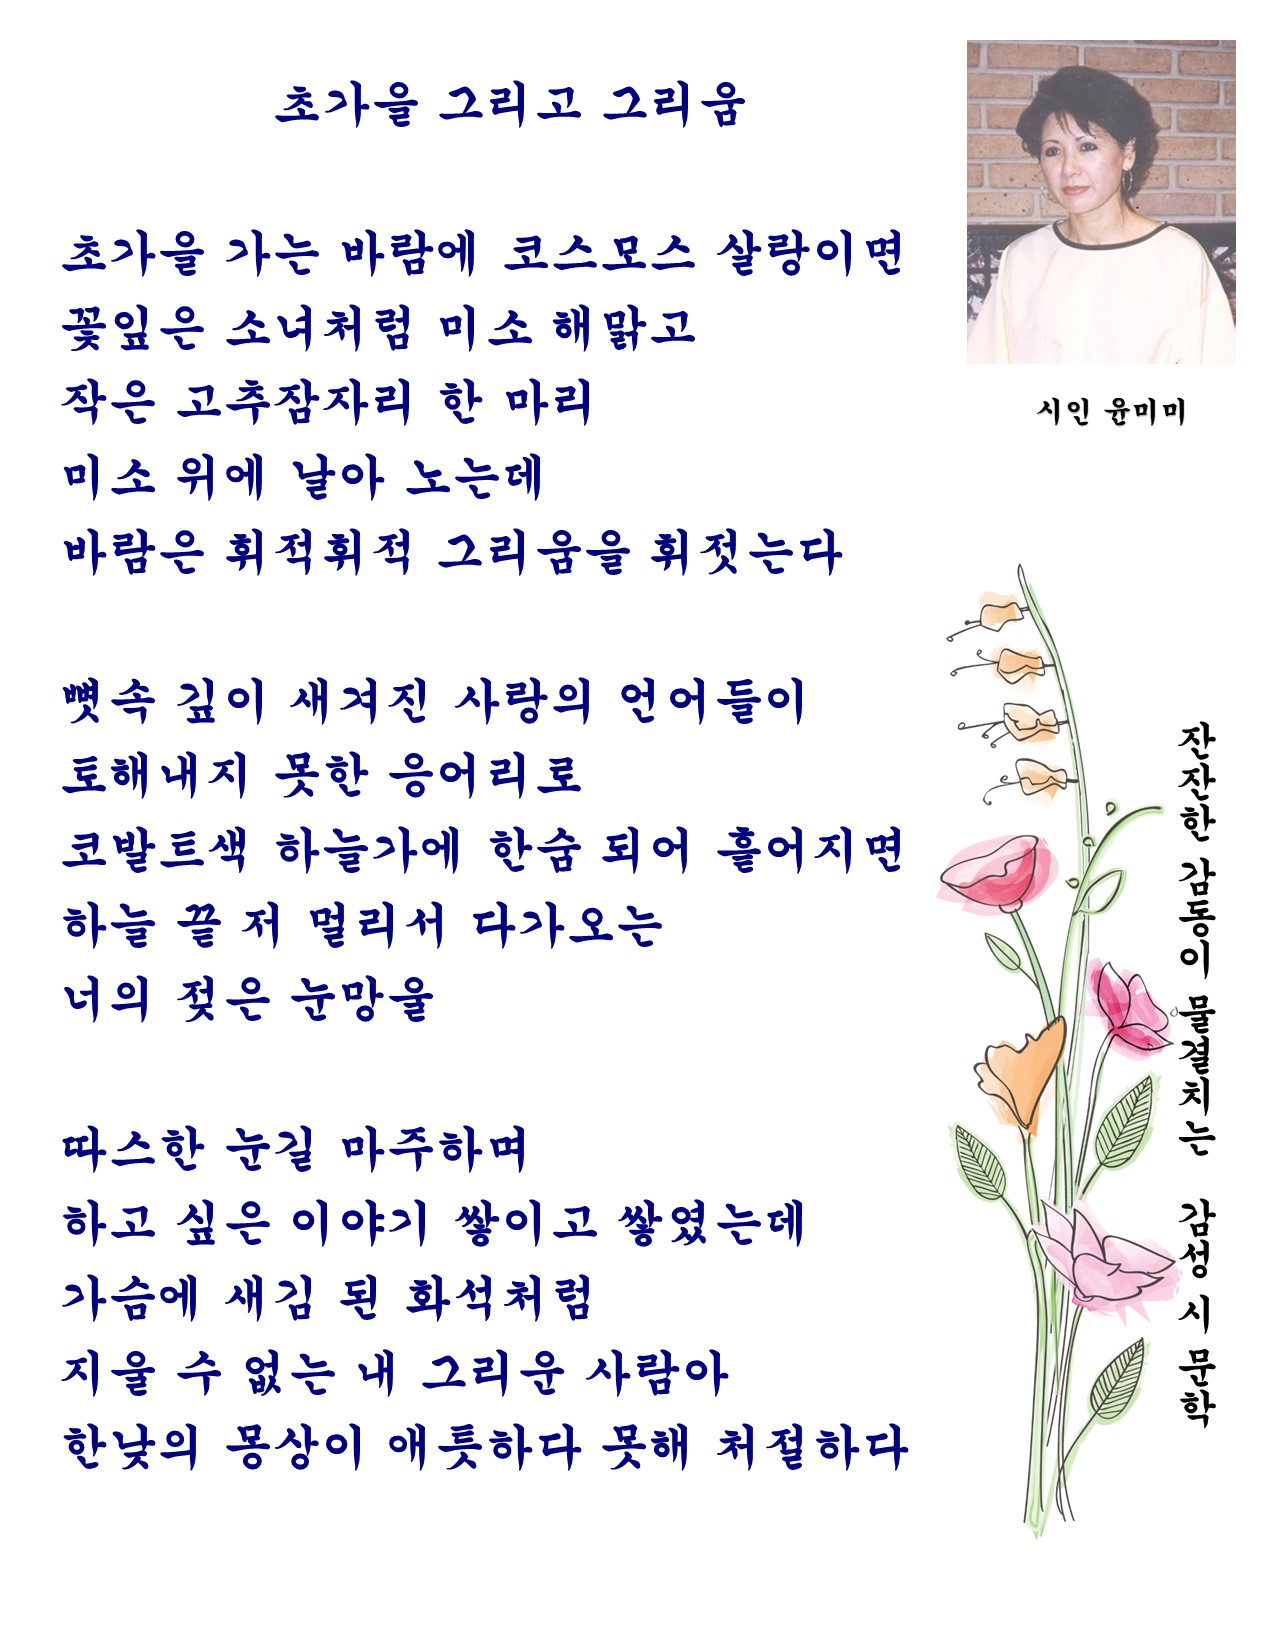 초가을 그리고 그리움
초가을 가는 바람에 코스모스 살랑이면
꽃잎은 소녀처럼 미소 해맑고
작은 고추잠자리 한 마리
미소 위에 날아 노는데
바람은 휘적휘적 그리움을 휘젓는다
뼛속 깊이 새겨진 사랑의 언어들이
토해내지 못한 응어리로
코발트색 하늘가에 한숨 되어 흩어지면
하늘 끝 저 멀리서 다가오는
너의 젖은 눈망울
따스한 눈길 마주하며
하고 싶은 이야기 쌓이고 쌓였는데
가슴에 새김 된 화석처럼
지울 수 없는 내 그리운 사람아
한낮의 몽상이 애틋하다 못해 처절하다
시인 윤미미
잔잔한 감동이 물결치는 감성 시 문학